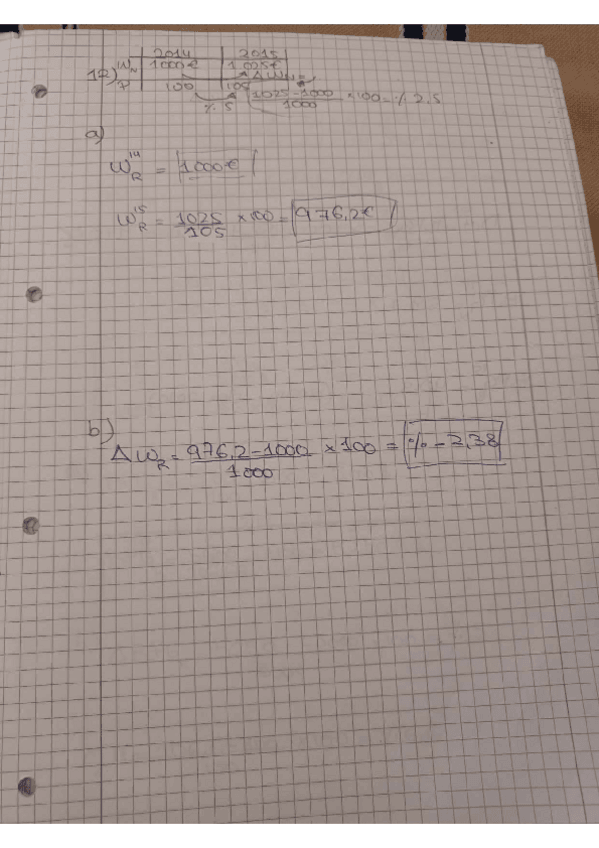 2014 2015
12) WN 1000€ 1025€
P 100 105 ΔWN =
% 5 1025-1000/1000 ×100 = % 2,5
a)
W_R^14 = 1000€
W_R^15 = 1025/105 ×100 = 976,2€
b)
ΔW_R = 976,2-1000/1000 ×100 = % -2,38